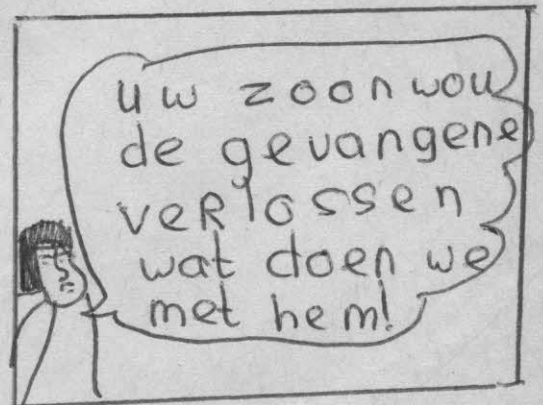 uw zoon wou
de gevangene
veRlossen
wat doen we
met hem!